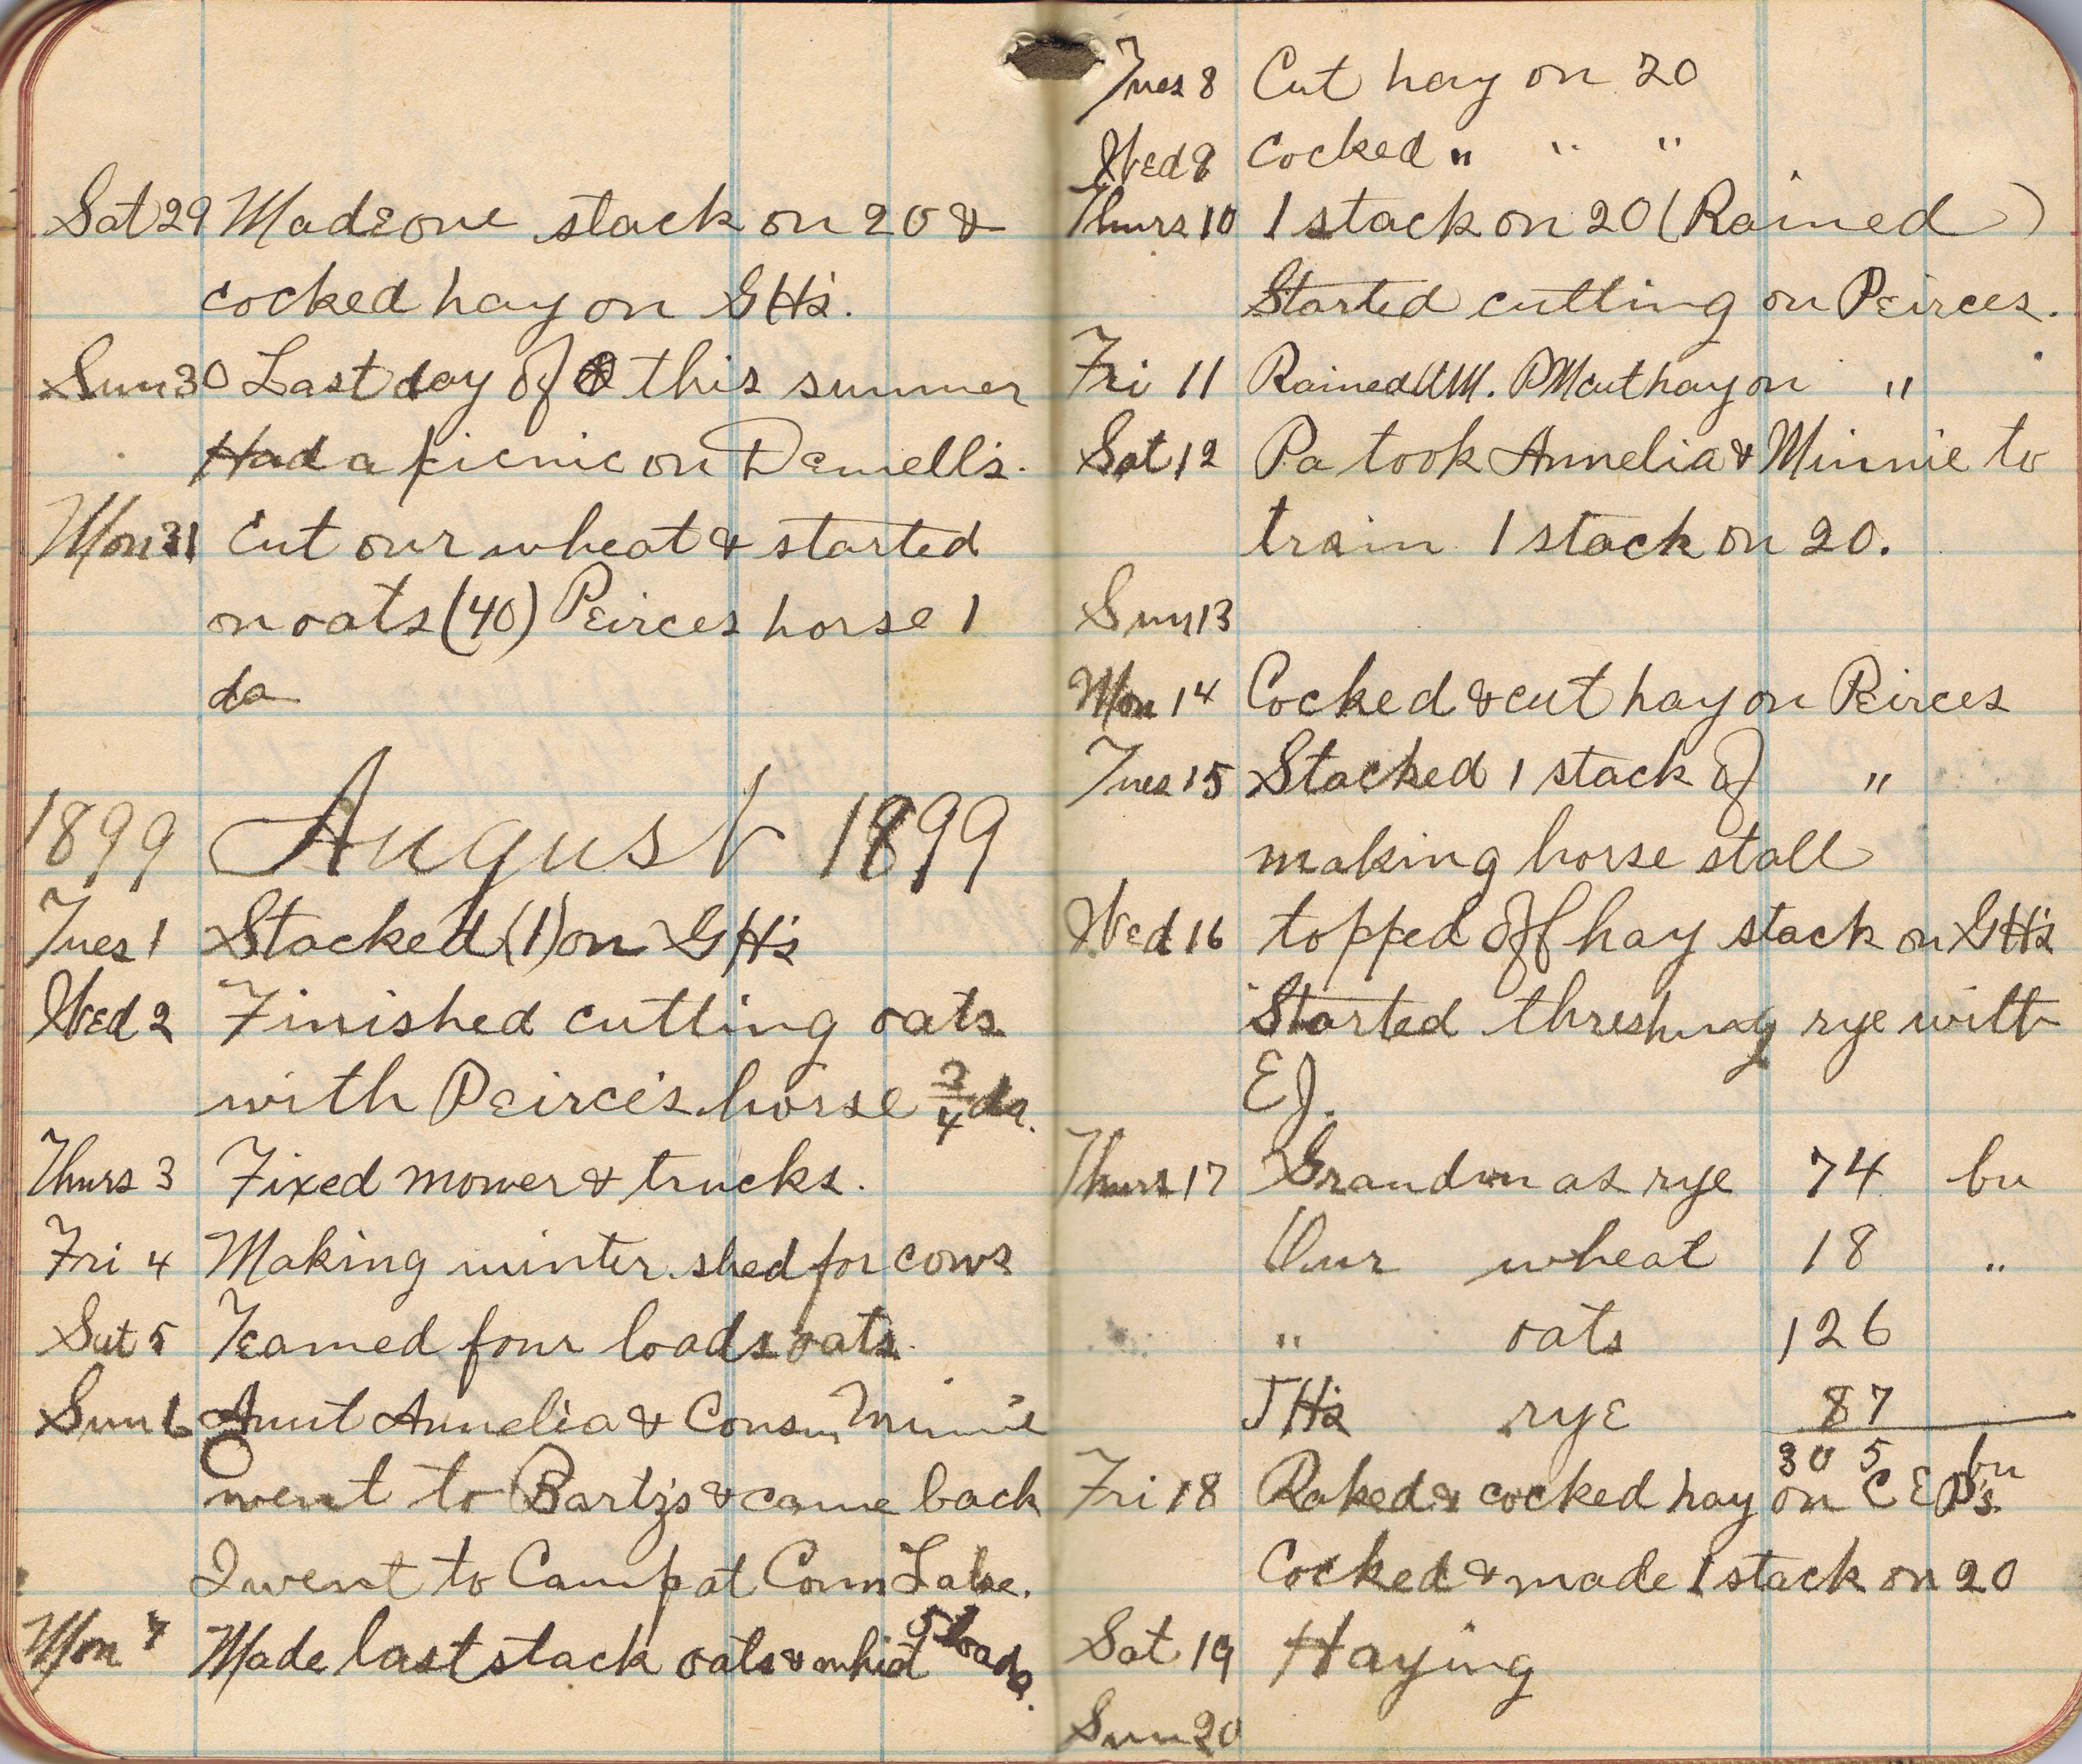 Sat 29 Made one stack on 20 &
cocked hay on GH's.
Sun 30 Last day of this summer
Had a picnic on Demell's.
Mon 31 Cut our wheat & started
on oats (40) Peirces horse 1
da
1899 August 1899
Tues 1 Stacked (1) on GH's
Wed 2 Finished cutting oats
with Peirce's horse 3/4 da.
Thurs 3 Fixed mower & trucks.
Fri 4 Making winter shed for cows
Sat 5 Teamed four loads oats.
Sun 6 Aunt Annelia & Cousin Minnie
went to Bartz's & came back
I went to Camp at Conn Lake.
Mon 7 Made last stack oats & 5 loads.
Tues 8 Cut hay on 20
Wed 9 Cocked " " "
Thurs 10 1 stack on 20 (Rained)
Started cutting on Peirces.
Fri 11 Rained AM. PM cut hay on "
Sat 12 Pa took Annelia & Minnie to
train 1 stack on 20.
Sun 13
Mon 14 Cocked & cut hay on Peirces
Tues 15 Stacked 1 stack of "
making horse stall
Wed 16 topped off hay stack on GH's
Started threshing rye with
EJ.
Thurs 17 Grandmas rye 74 bu
Our wheat 18 "
" oats 126
JH's rye 87
305 bu
Fri 18 Raked & cocked hay on CEP's.
Cocked & made 1 stack on 20
Sat 19 Haying
Sun 20